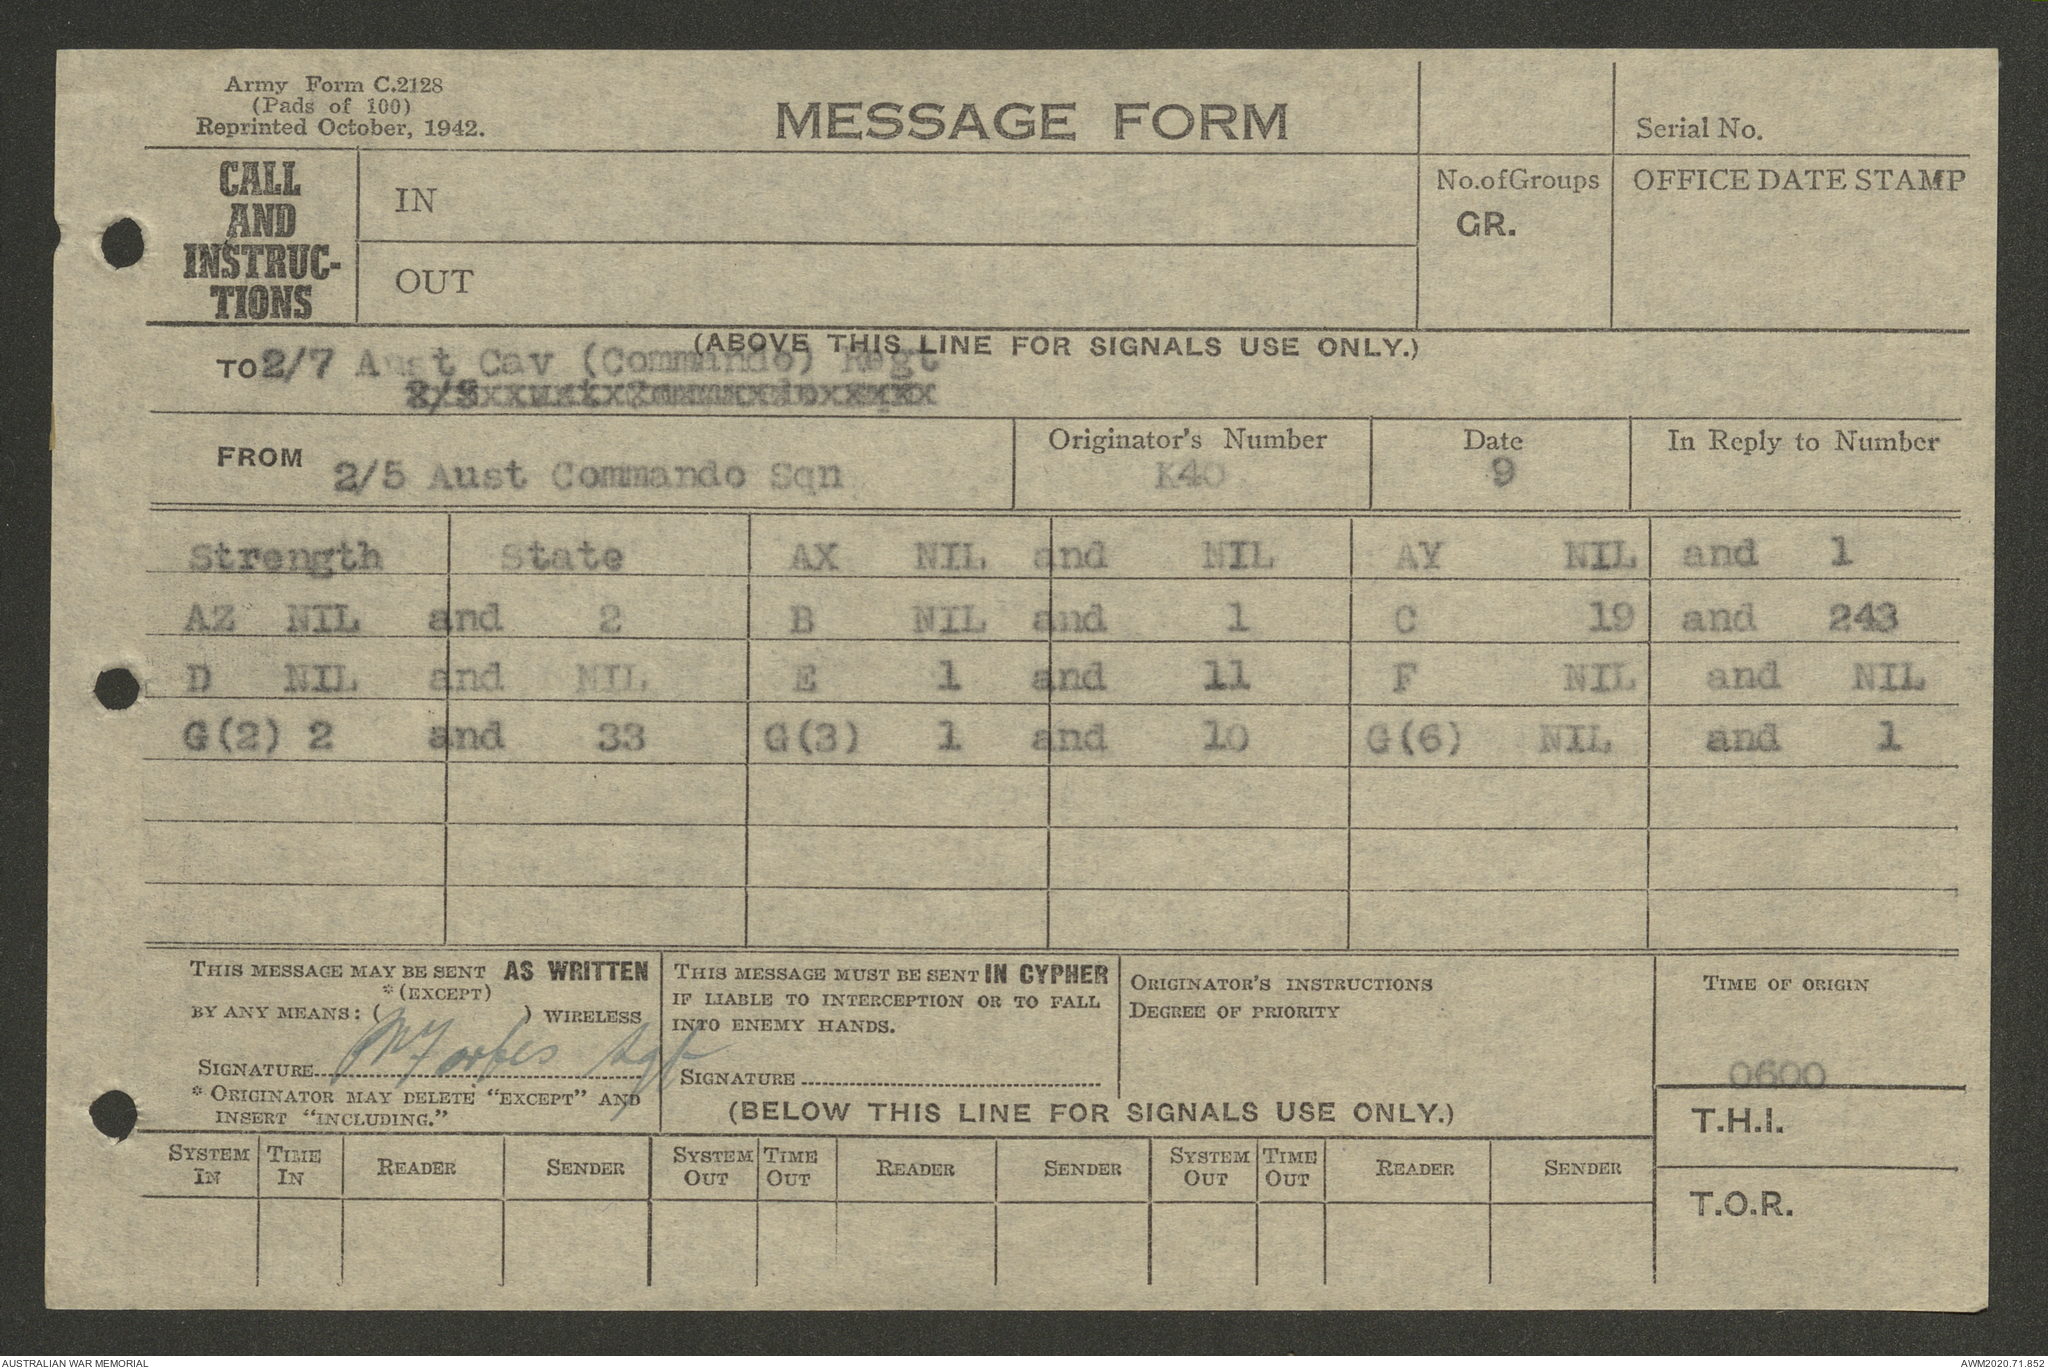 Army Form C.2128
(Pads of 100)
Reprinted October, 1942.
MESSAGE FORM
Serial No.
CALL
AND
INSTRUC-
TIONS
IN
OUT
No. of Groups
GR.
OFFICE DATE STAMP
(ABOVE THIS LINE FOR SIGNALS USE ONLY.)
TO 2/7 Aust Cav (Commando) Regt
FROM 2/5 Aust Commando Sqn
Originator's Number
K40
Date
9
In Reply to Number
Strength State AX NIL and NIL AY NIL and 1
AZ NIL and 2 B NIL and 1 C 19 and 243
D NIL and NIL E 1 and 11 F NIL and NIL
G(2) 2 and 33 G(3) 1 and 10 G(6) NIL and 1
THIS MESSAGE MAY BE SENT AS WRITTEN
*(EXCEPT)
BY ANY MEANS: ( ) WIRELESS
SIGNATURE Forbes Sgt
* ORIGINATOR MAY DELETE "EXCEPT" AND
INSERT "INCLUDING."
THIS MESSAGE MUST BE SENT IN CYPHER
IF LIABLE TO INTERCEPTION OR TO FALL
INTO ENEMY HANDS.
SIGNATURE
ORIGINATOR'S INSTRUCTIONS
DEGREE OF PRIORITY
TIME OF ORIGIN
0600
T.H.I.
T.O.R.
(BELOW THIS LINE FOR SIGNALS USE ONLY.)
SYSTEM IN TIME IN READER SENDER SYSTEM OUT TIME OUT READER SENDER SYSTEM OUT TIME OUT READER SENDER
AUSTRALIAN WAR MEMORIAL
AWM2020.71.852